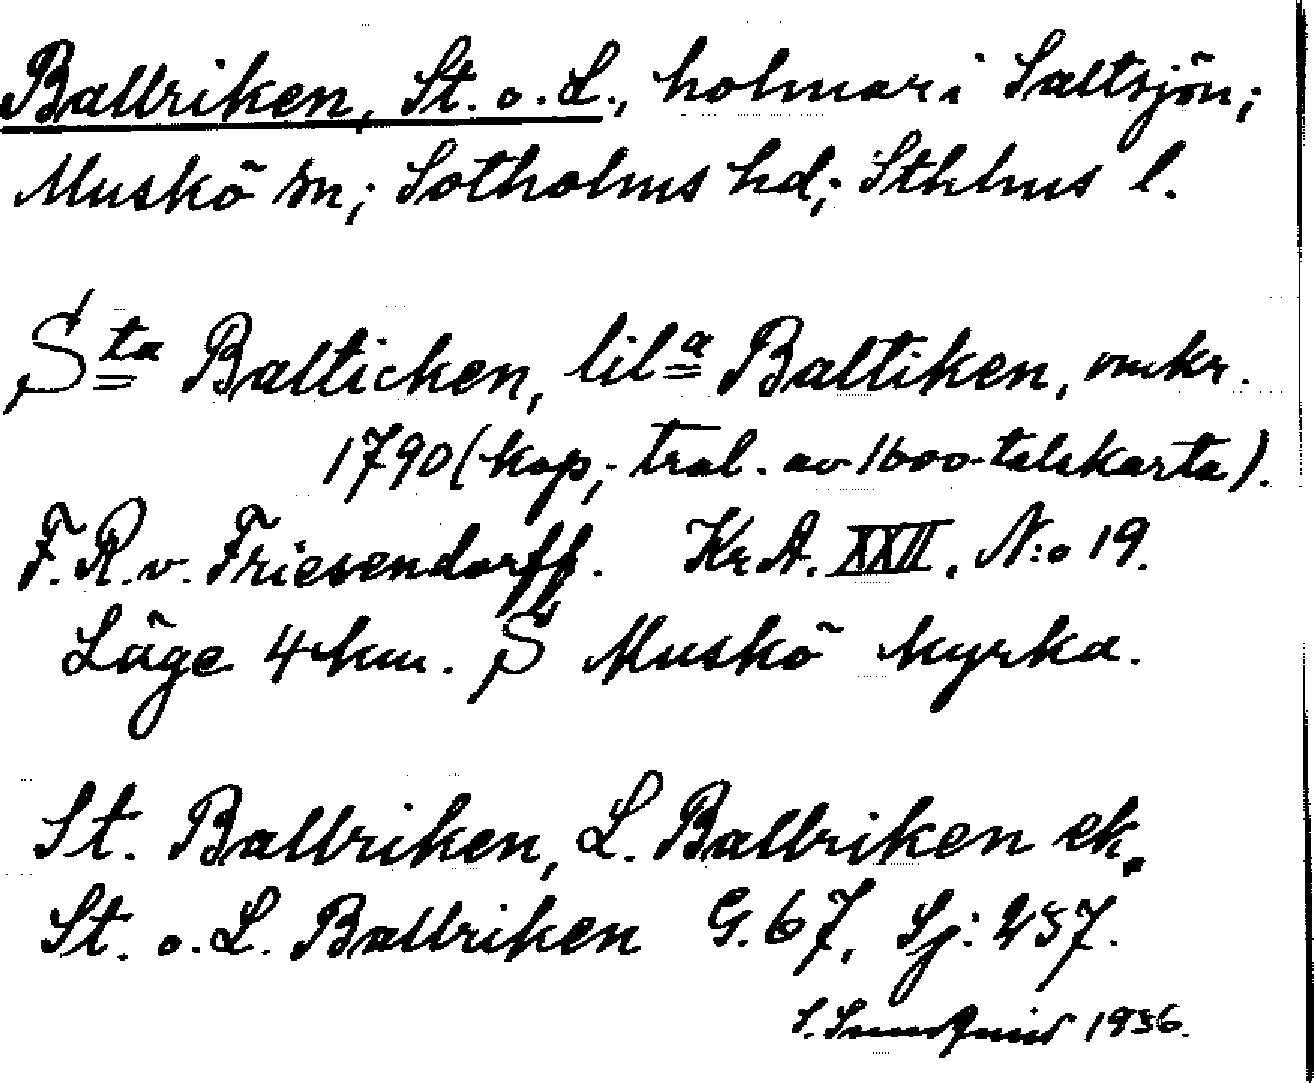 Ballriken, St. o. L., holmar i Saltsjön;
Muskö sn; Sotholms hd; Sthlms l.
Sta Balticken, lila Baltiken, omkr.
1790 (kop; tral. av 1600-talskarta).
F. R. v. Friesendorff. Kr. A. XXII. N:o 19.
Läge 4 km. S Muskö kyrka.
St. Ballriken, L. Ballriken ek.
St. o. L. Ballriken G. 67, Sj: 457.
S. Sundquist 1936.